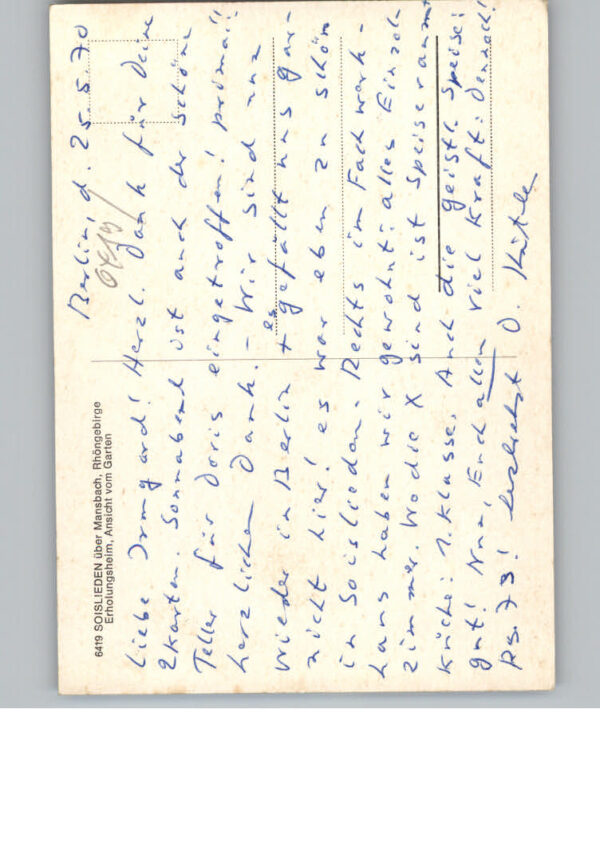 6419 SOISLIEDEN über Mansbach, Rhöngebirge
Erholungsheim, Ansicht vom Garten
Berlin, d. 25.5.70
Liebe Irmgard! Herzl. Dank für Deine
2 Karten. Sonnabend ist auch der schöne
Teller für Doris eingetroffen! prima!!
herzlichen Dank. – Wir sind nun
wieder in Berlin + es gefällt uns gar-
nicht hier! es war eben zu schön
in Soislieden. Rechts im Fachwerk-
haus haben wir gewohnt: alles Einzel-
zimmer. Wo die X sind ist Speiseraum +
Küche: 1. Klasse. Auch die geistl. Speise:
gut! Nun, Euch allen viel Kraft: Dennoch!
Ps. 73! herzlichst O. Käthe